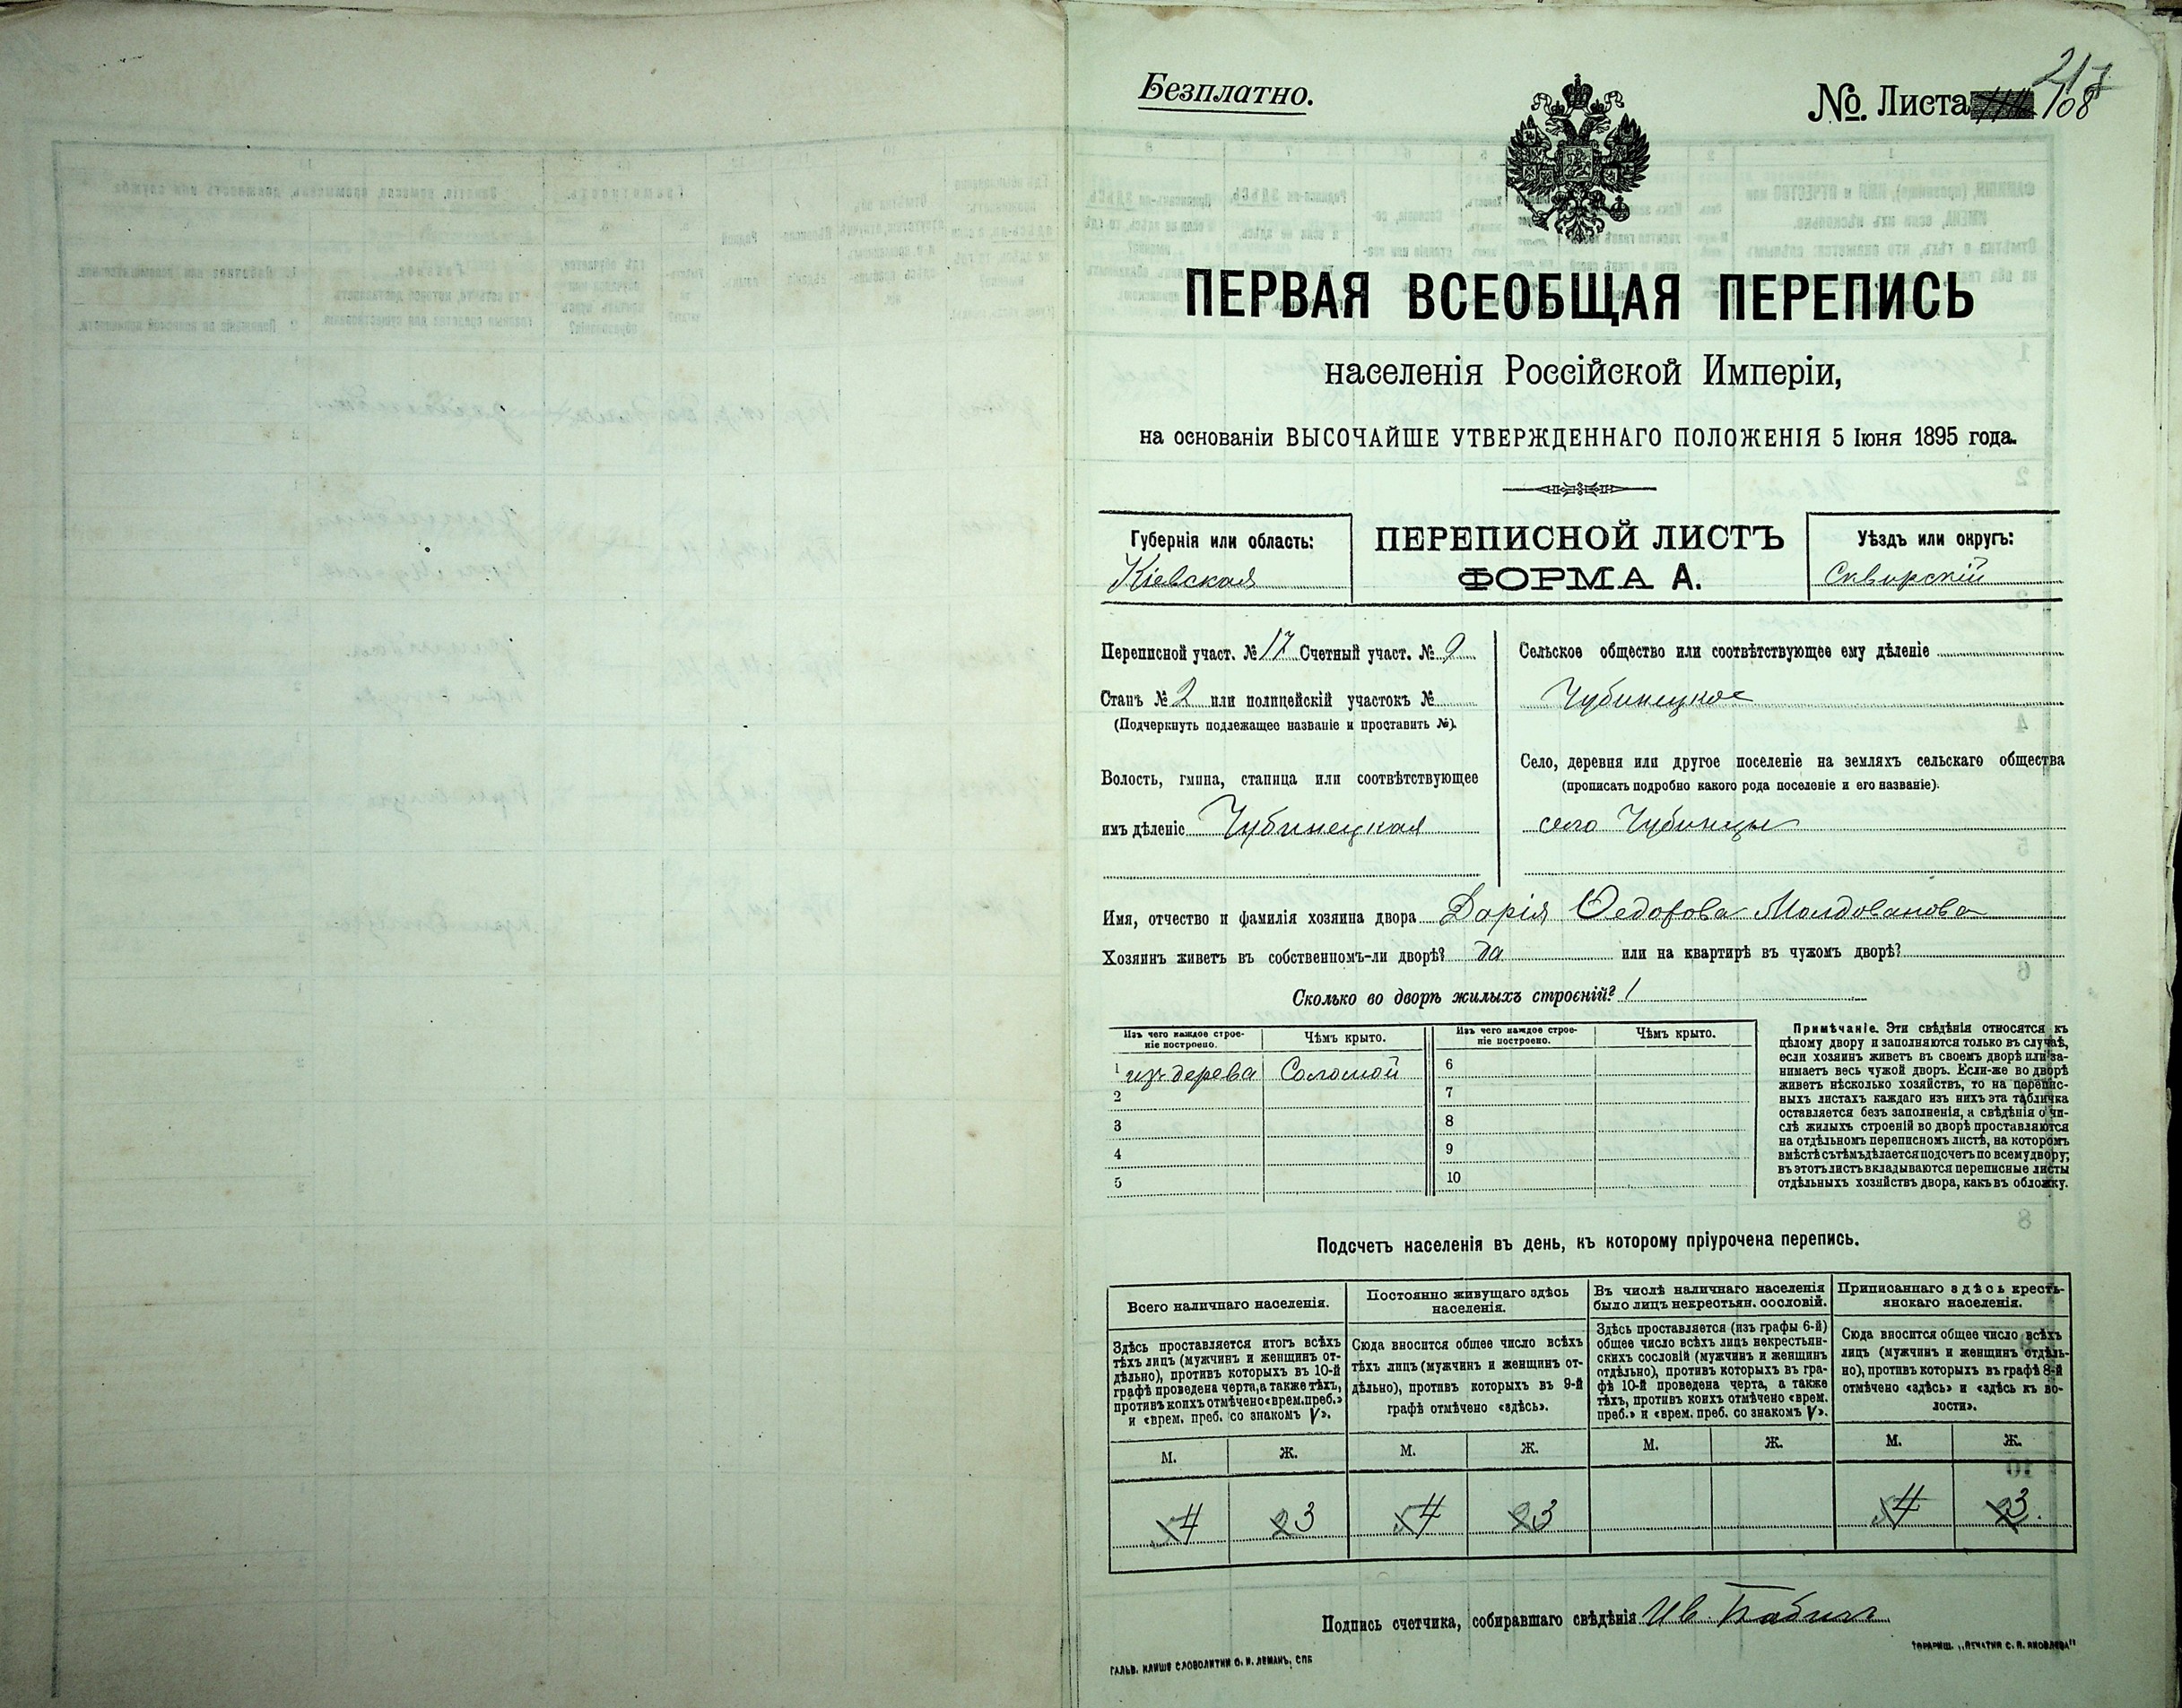 Безплатно.
№ Листа 108
217
ПЕРВАЯ ВСЕОБЩАЯ ПЕРЕПИСЬ
населенія Россійской Имперіи,
на основаніи ВЫСОЧАЙШЕ УТВЕРЖДЕННАГО ПОЛОЖЕНІЯ 5 Іюня 1895 года.
Губернія или область:
Кіевская
ПЕРЕПИСНОЙ ЛИСТЪ
ФОРМА А.
Уѣздъ или округъ:
Сквирскій
Переписной участ. № 17 Счетный участ. № 9
Станъ № 2 или полицейскій участокъ №
(Подчеркнуть подлежащее названіе и проставить №).
Волость, гмина, станица или соотвѣтствующее
имъ дѣленіе Чубинецкая
Сельское общество или соотвѣтствующее ему дѣленіе
Чубинецкое
Село, деревня или другое поселеніе на земляхъ сельскаго общества
(прописать подробно какого рода поселеніе и его названіе).
село Чубинцы
Имя, отчество и фамилія хозяина двора Дарія Ѳедорова Молдованова
Хозяинъ живетъ въ собственномъ-ли дворѣ? да или на квартирѣ въ чужомъ дворѣ?
Сколько во дворѣ жилыхъ строеній? 1
Изъ чего каждое строе-
ніе построено.
Чѣмъ крыто.
Изъ чего каждое строе-
ніе построено.
Чѣмъ крыто.
1 изъ дерева Соломой 6
2 7
3 8
4 9
5 10
Примѣчаніе. Эти свѣдѣнія относятся къ
цѣлому двору и заполняются только въ случаѣ,
если хозяинъ живетъ въ своемъ дворѣ или за-
нимаетъ весь чужой дворъ. Если-же во дворѣ
живетъ нѣсколько хозяйствъ, то на перепис-
ныхъ листахъ каждаго изъ нихъ эта табличка
оставляется безъ заполненія, а свѣдѣнія о чи-
слѣ жилыхъ строеній во дворѣ проставляются
на отдѣльномъ переписномъ листѣ, на которомъ
вмѣстѣ съ тѣмъ дѣлается подсчетъ по всему двору;
въ этотъ листъ вкладываются переписные листы
отдѣльныхъ хозяйствъ двора, какъ въ обложку.
Подсчетъ населенія въ день, къ которому пріурочена перепись.
Всего наличнаго населенія.
Здѣсь проставляется итогъ всѣхъ
тѣхъ лицъ (мужчинъ и женщинъ от-
дѣльно), противъ которыхъ въ 10-й
графѣ проведена черта, а также тѣхъ,
противъ коихъ отмѣчено «врем. преб.»
и «врем. преб. со знакомъ V».
Постоянно живущаго здѣсь
населенія.
Сюда вносится общее число всѣхъ
тѣхъ лицъ (мужчинъ и женщинъ от-
дѣльно), противъ которыхъ въ 9-й
графѣ отмѣчено «здѣсь».
Въ числѣ наличнаго населенія
было лицъ некрестьян. сословій.
Здѣсь проставляется (изъ графы 6-й)
общее число всѣхъ лицъ некрестьян-
скихъ сословій (мужчинъ и женщинъ
отдѣльно), противъ которыхъ въ гра-
фѣ 10-й проведена черта, а также
тѣхъ, противъ коихъ отмѣчено «врем.
преб.» и «врем. преб. со знакомъ V».
Приписаннаго здѣсь кресть-
янскаго населенія.
Сюда вносится общее число всѣхъ
лицъ (мужчинъ и женщинъ отдѣль-
но), противъ которыхъ въ графѣ 8-й
отмѣчено «здѣсь» и «здѣсь къ во-
лости».
М. Ж. М. Ж. М. Ж. М. Ж.
4 3 4 3 4 3
Подпись счетчика, собиравшаго свѣдѣнія Ив.
ГАЛЬВ. КЛИШЕ СЛОВОЛИТНИ О. И. ЛЕМАНЪ, СПБ
ТОВАРИЩ. „ПЕЧАТНЯ С. П. ЯКОВЛЕВА"